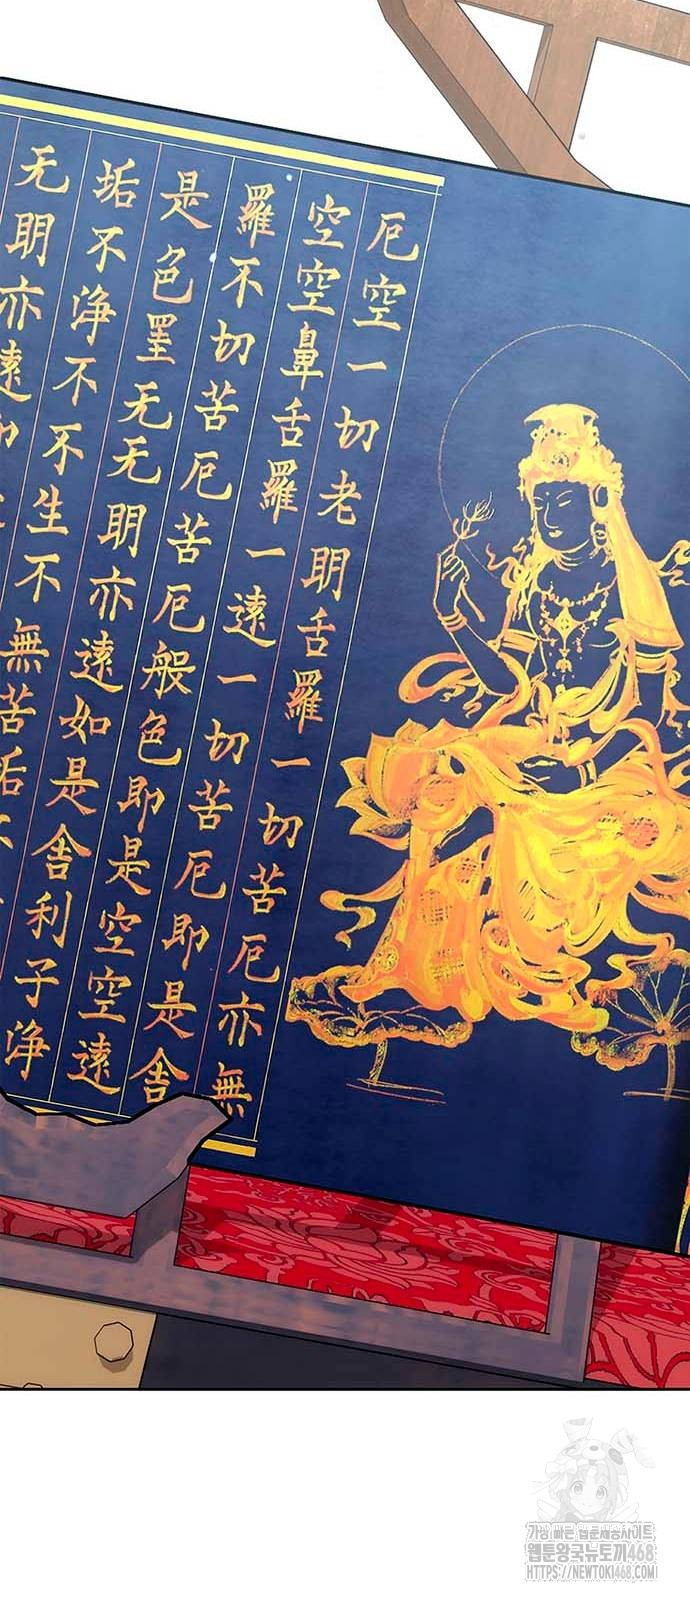 厄空一切老明舌羅一切苦厄亦無
空空鼻舌羅一遠一切苦厄即是舎
羅不切苦厄苦厄般色即是空空遠
是色罣无无明亦遠如是舎利子浄
垢不浄不不生不無苦垢
无明亦遠即
가장 빠른 웹툰제공사이트
웹툰왕국뉴토끼468
HTTPS://NEWTOKI468.COM